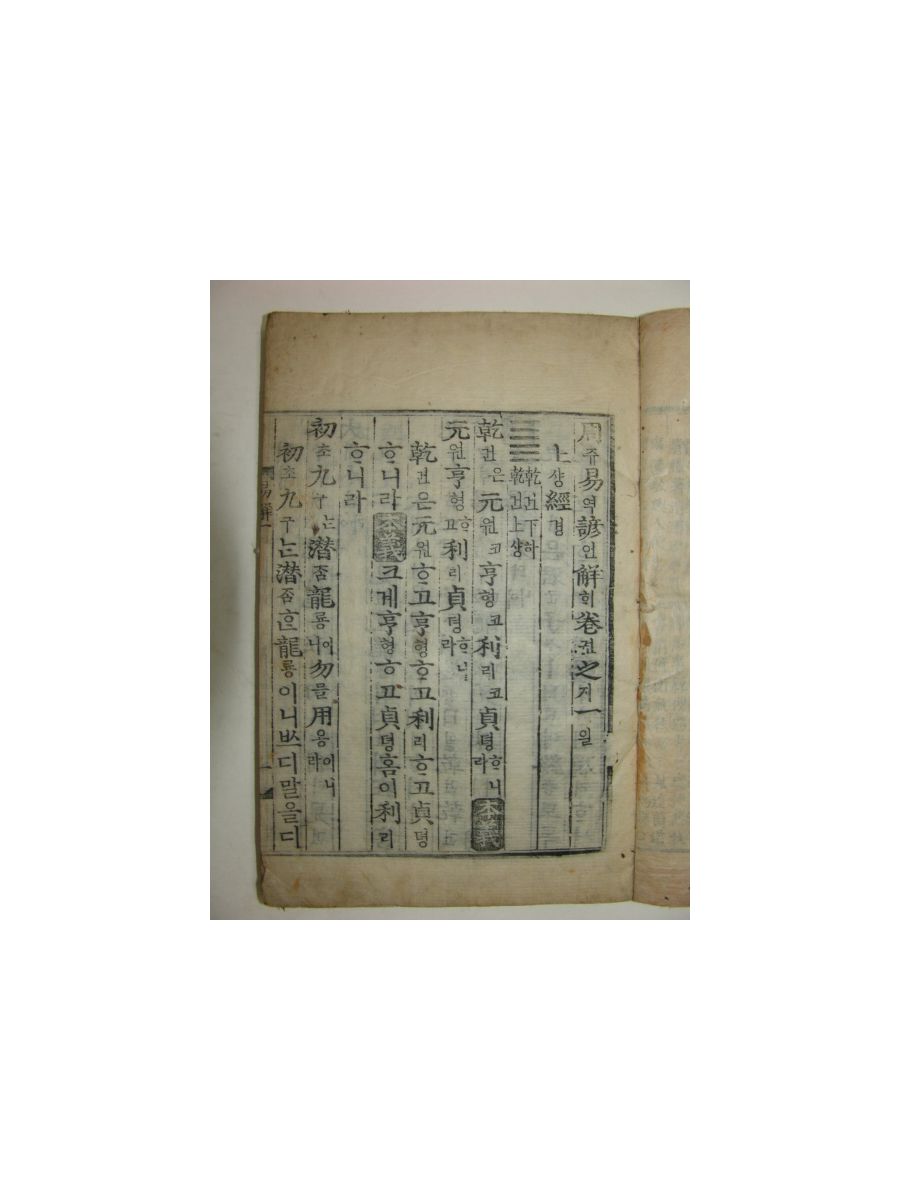 周쥬易역諺언解ᄒᆡ卷권之지一일
上샹經경
乾건下하乾건上샹
乾건은元원코亨형코利리코貞뎡ᄒᆞ니라本義
元원亨형ᄒᆞ고利리貞뎡ᄒᆞ니라
乾건은元원ᄒᆞ고亨형ᄒᆞ고利리ᄒᆞ고貞뎡
ᄒᆞ니라本義크게亨형ᄒᆞ고貞뎡홈이利리
ᄒᆞ니라
初초九구ᄂᆞᆫ潛ᄌᆞᆷ龍룡이니勿믈用용이니라
初초九구ᄂᆞᆫ潛ᄌᆞᆷᄒᆞᆫ龍룡이니ᄡᅳ디말을디
易解一